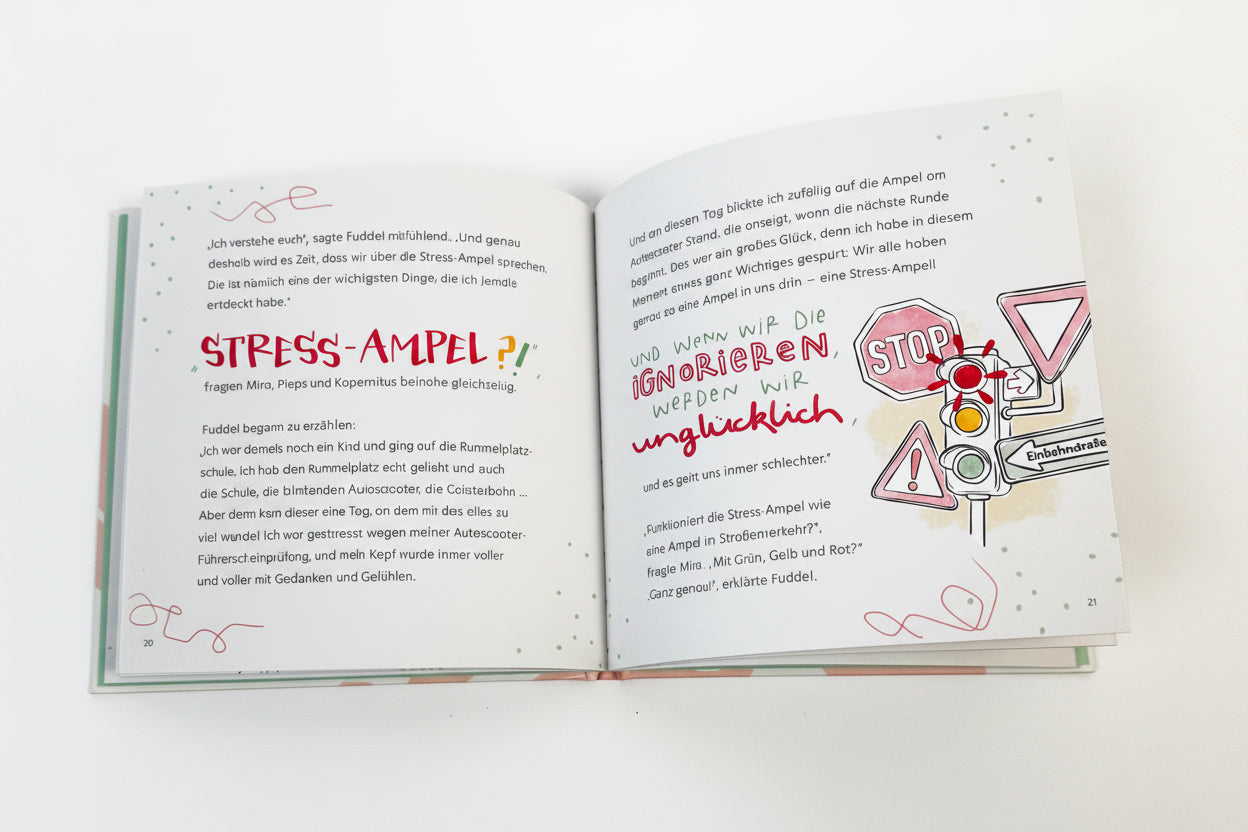 „Ich verstehe euch", sagte Fuddel mitfühlend.. „Und genau
deshalb wird es Zeit, doss wir über die Stress-Ampel sprechen.
Die ist nämlich eine der wichtigsten Dinge, die ich Jemale
entdeckt habe."
„STRESS-AMPEL?!",
fragten Mira, Pieps und Kopernitus beinohe gleichseilig.
Fuddel begann zu erzählen:
„Ich wor demels noch ein Kind und ging ouf die Rummelplatz-
schule, Ich hob den Rummelplatz echt gelieht und auch
die Schule, die blmtenden Auioscooter, die Coisterbohn ...
Aber demm ksm dieser eine Tog, on dem mir des elles su
viel wundel Ich wor gestresst wegen meiner Autescooter-
Führerscheinprüfong, und meln Kepf wurde inmer voller
und voller mit Gedanken und Gelühlen.
20
Und an diesen Tog blickte ich zufällig auf die Ampel om
Stand, die onseigt, wonn die nächste Runde
beginnt. Des wer ain großes Glück, denn ich habe in diesem
Wichtiges gespürt: Wir alle hoben
eine Ampel in uns drin – eine Stress-Ampell
UND WENN WIR DIE
IGNORIEREN,
WERDEN WIR
unglücklich,
und es geirt uns inmer schlechter."
„Funktioniert die Stress-Ampel wie
eine Ampel in Stroßenverkehr?",
fragle Mira. „Mit Grün, Gelb und Rot?"
„Ganz genou!", erklärte Fuddel.
STOP
Einbehndraße
21